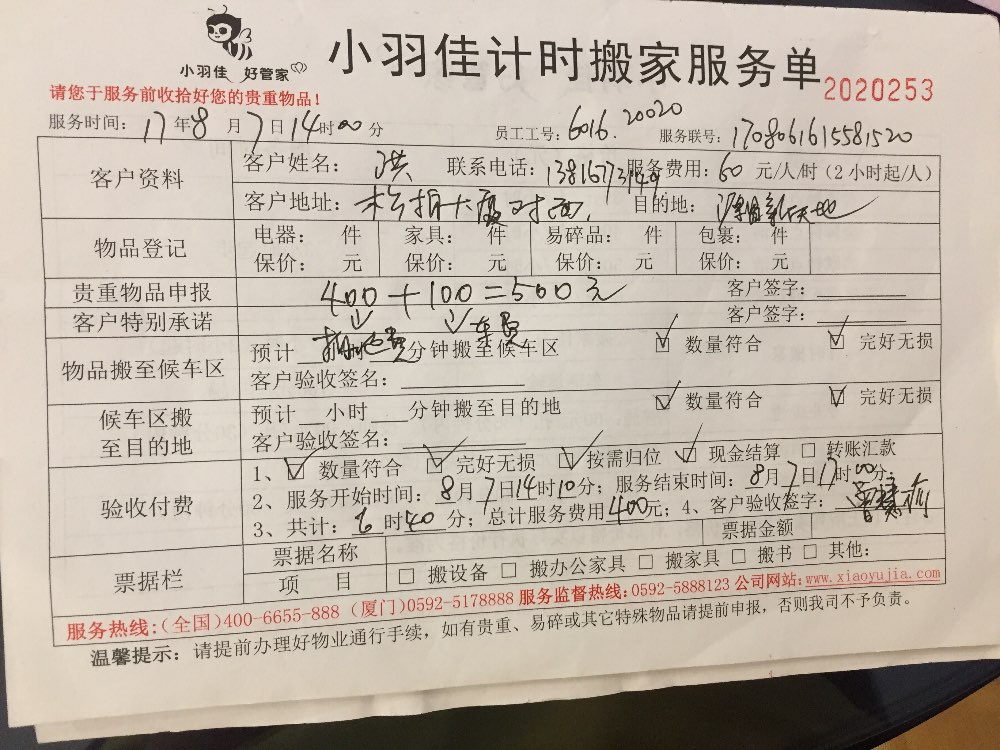 小羽佳 好管家
小羽佳计时搬家服务单 2020253
请您于服务前收拾好您的贵重物品！
服务时间：17年8月7日14时00分 员工工号：6016.20020 服务联号：1708061615581520
客户资料 客户姓名：洪 联系电话：13816773149 服务费用：60 元/人/时（2小时起/人）
客户地址：松柏大厦对面， 目的地：
物品登记 电器： 件 家具： 件 易碎品： 件 包裹： 件
保价： 元 保价： 元 保价： 元 保价： 元
贵重物品申报 400+100=500元 客户签字：
客户特别承诺 客户签字：
搬运费 车费
物品搬至候车区 预计 分钟搬至候车区 ☑ 数量符合 ☑ 完好无损
客户验收签名：
候车区搬至目的地 预计 小时 分钟搬至目的地 ☑ 数量符合 ☑ 完好无损
客户验收签名：
验收付费 1、☑ 数量符合 ☑ 完好无损 ☑ 按需归位 ☑ 现金结算 □ 转账汇款
2、服务开始时间：8月7日14时10分；服务结束时间：8月7日17时00分；
3、共计：6时40分；总计服务费用400元；4、客户验收签字：
票据栏 票据名称 票据金额
项 目 □ 搬设备 □ 搬办公家具 □ 搬家具 □ 搬书 □ 其他：
服务热线：（全国）400-6655-888（厦门）0592-5178888 服务监督热线：0592-5888123 公司网站：www.xiaoyujia.com
温馨提示：请提前办理好物业通行手续，如有贵重、易碎或其它特殊物品请提前申报，否则我司不予负责。